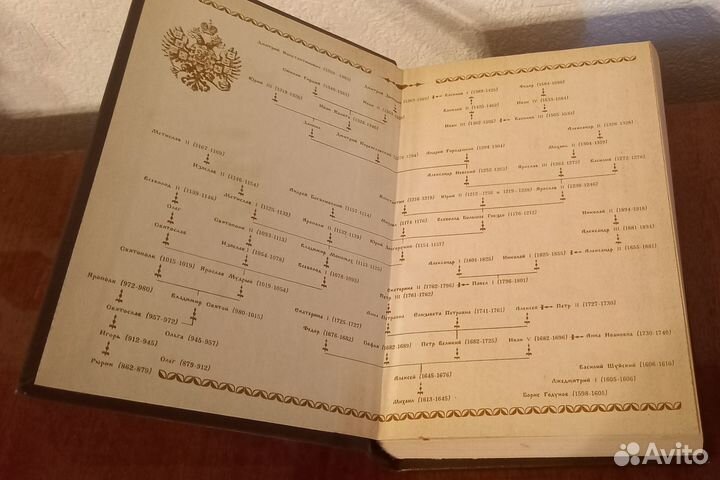 Дмитрий Константинович
Симеон Гордый
Юрий III
Иван Калита
Дмитрий
Мстислав II (1167-1169)
Изяслав II (1146-1154)
Всеволод II (1139-1146)
Мстислав I (1125-1132)
Андрей Боголюбский (1157-1174)
Олег
Святополк II (1093-1113)
Ярополк II (1132-1139)
Святослав
Изяслав I (1054-1078)
Владимир Мономах (1113-1125)
Святополк (1015-1019)
Ярослав Мудрый (1019-1054)
Всеволод I (1078-1093)
Ярополк (972-980)
Владимир Святой (980-1015)
Святослав (957-972)
Ольга (945-957)
Игорь (912-945)
Олег (879-912)
Рюрик (862-879)
Василий I (1389-1425)
Федор (1584-1598)
Василий II (1425-1462)
Иван IV (1533-1584)
Иван III (1462-1505)
Василий III (1505-1533)
Александр II (1326-1328)
Андрей Городецкий (1294-1304)
Михаил II (1304-1319)
Александр Невский (1252-1263)
Ярослав III (1263-1272)
Василий (1272-1276)
Константин (1216-1219)
Юрий II (1212-1216 и 1219-1238)
Ярослав II (1238-1246)
Всеволод Большое Гнездо (1176-1212)
Николай II (1894-1918)
Юрий Долгорукий (1154-1157)
Александр III (1881-1894)
Александр I (1801-1825)
Николай I (1825-1855)
Александр II (1855-1881)
Екатерина II (1762-1796)
Павел I (1796-1801)
Петр III (1761-1762)
Анна Петровна
Елизавета Петровна (1741-1761)
Алексей
Петр II (1727-1730)
Екатерина I (1725-1727)
Федор (1676-1682)
Софья (1682-1689)
Петр Великий (1682-1725)
Иван V (1682-1696)
Анна Иоановна (1730-1740)
Алексей (1645-1676)
Василий Шуйский (1606-1610)
Лжедмитрий I (1605-1606)
Михаил (1613-1645)
Борис Годунов (1598-1605)
Avito